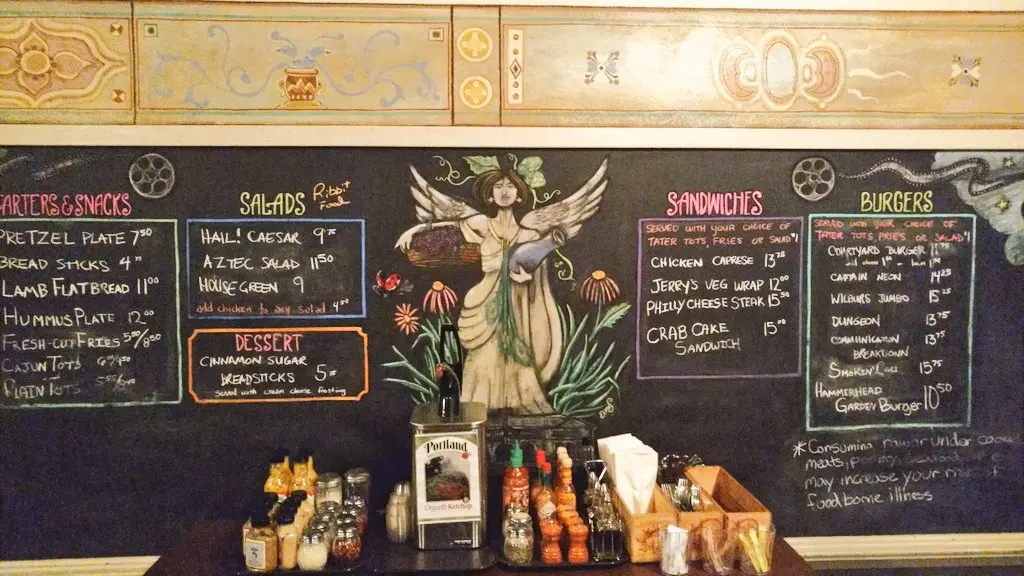 ARTERS & SNACKS
PRETZEL PLATE 7⁵⁰
BREAD STICKS 4
LAMB FLATBREAD 11⁰⁰
HUMMUS PLATE 12⁰⁰
FRESH-CUT FRIES
CAJUN TOTS
PLAIN TOTS
SALADS
Ribbit
Food
HAIL! CAESAR 9
AZTEC SALAD 11⁵⁰
HOUSE GREEN 9
add chicken to any salad 4⁵⁰
DESSERT
CINNAMON SUGAR
BREADSTICKS 5
Served with cream cheese frosting
SANDWICHES
SERVED WITH YOUR CHOICE OF
TATER TOTS, FRIES OR SALAD
CHICKEN CAPRESE
JERRY'S VEG WRAP 12⁰⁰
PHILLY CHEESE STEAK 15⁵⁰
CRAB CAKE 15
SANDWICH
BURGERS
SERVED WITH YOUR CHOICE OF
TATER TOTS, FRIES OR SALAD
COURTYARD BURGER
CAPTAIN NEON
WILBURS JUMBO
DUNGEON 13⁷⁵
COMMUNICATION
BREAKDOWN
SMOKIN'
HAMMERHEAD
GARDEN BURGER 10⁵⁰
*Consuming raw or under
meats
may increase your
food borne illness
Portland
Organic Ketchup